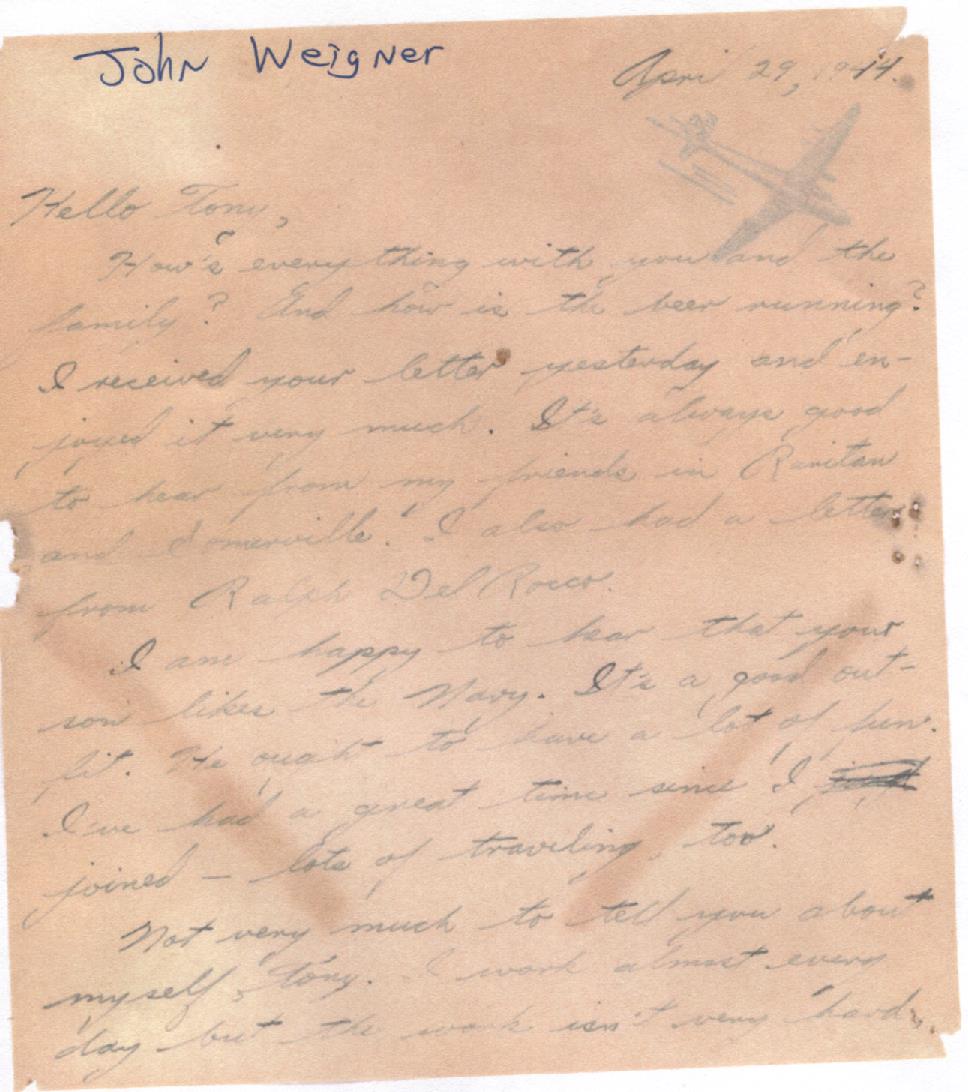 John Weigner
April 29, 1944.
Hello Tony,
How's everything with you and the
family? And how is the beer running?
I received your letter yesterday and en-
joyed it very much. It's always good
to hear from my friends in Raritan
and Somerville. I also had a letter
from Ralph Del Rocco.
I am happy to hear that your
son likes the Navy. It's a good out-
fit. He ought to have a lot of fun.
I've had a great time since I
joined – lots of traveling, too.
Not very much to tell you about
myself, Tony. I work almost every
day but the work isn't very hard.